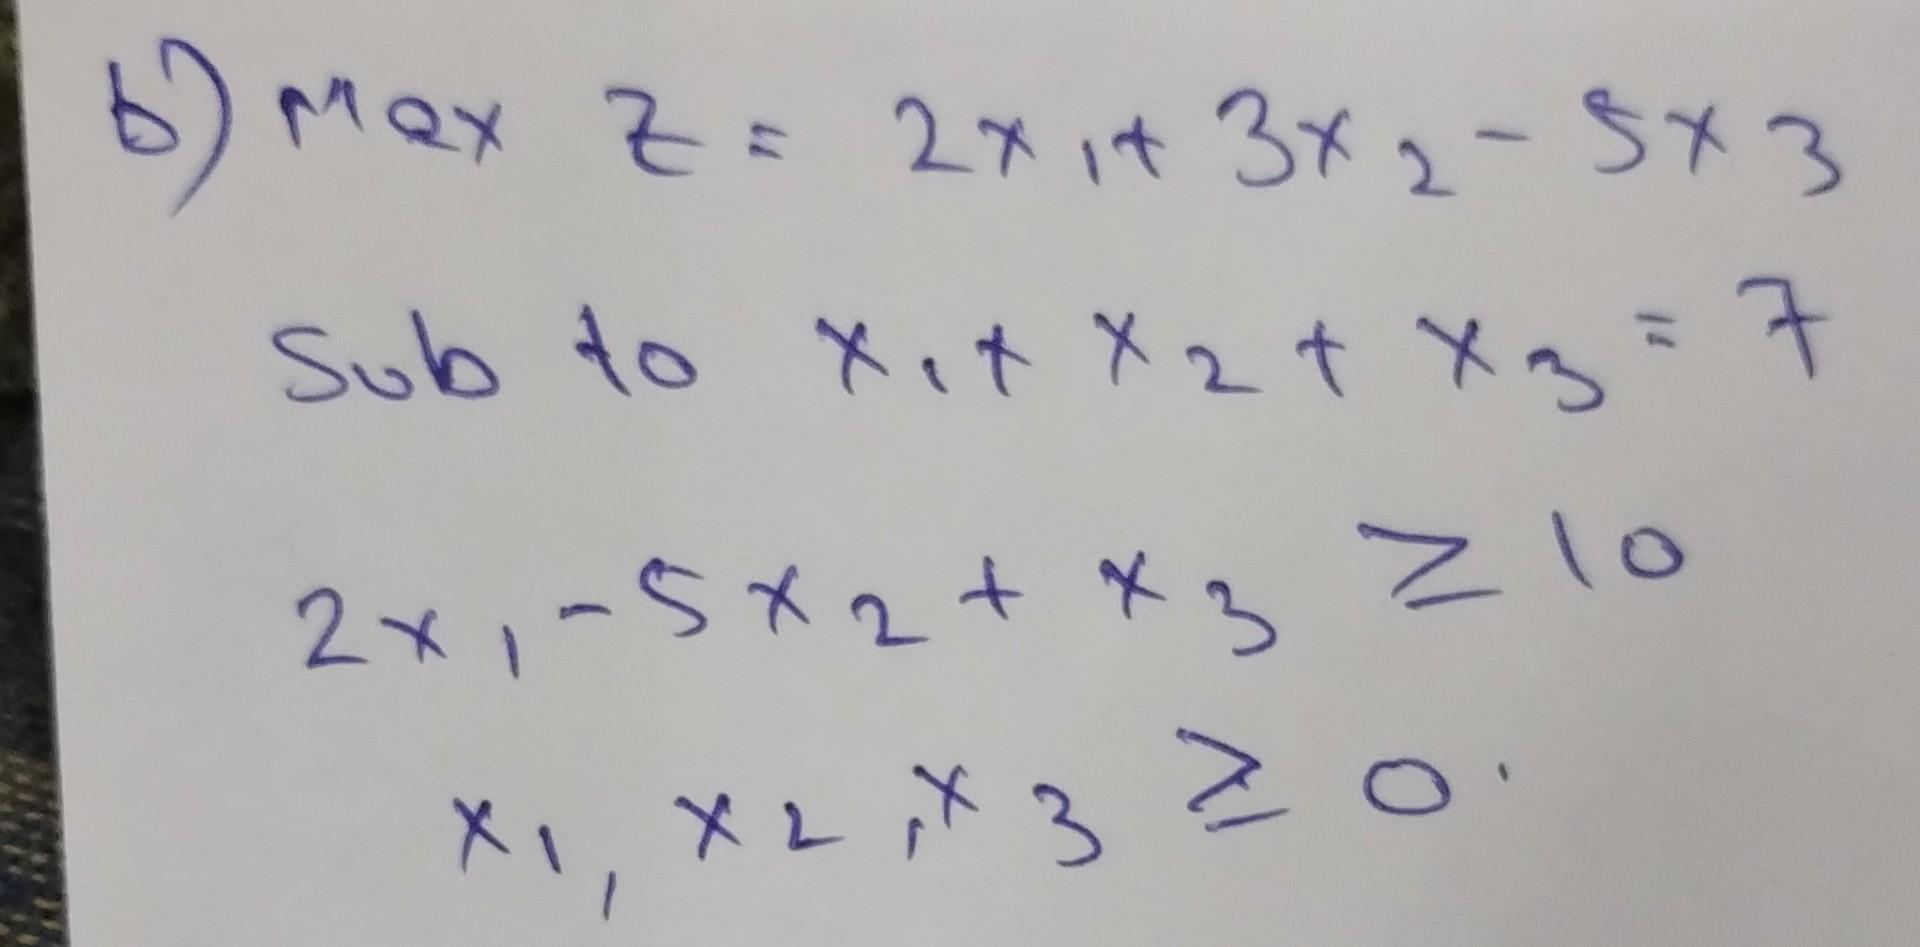 b) Max Z = 2x₁ + 3x₂ - 5x₃
Sub to x₁ + x₂ + x₃ = 7
2x₁ - 5x₂ + x₃ ≥ 10
x₁, x₂, x₃ ≥ 0.